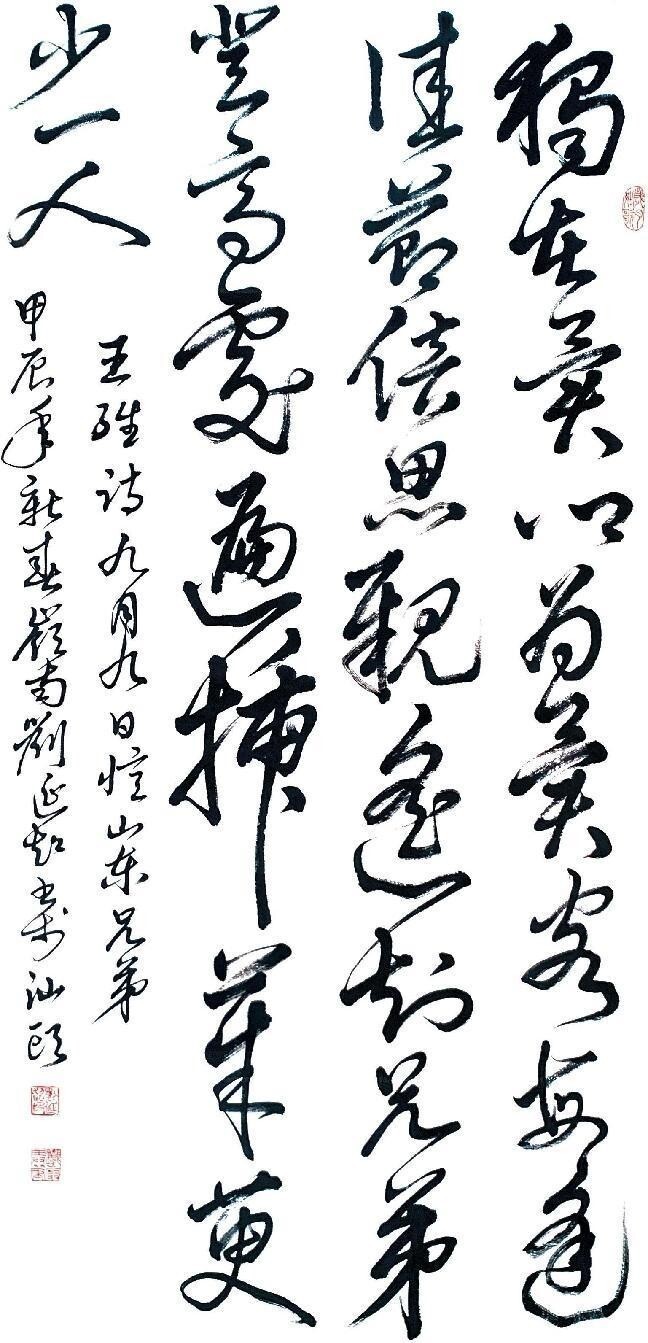 獨在異鄉為異客每逢
佳節倍思親遙知兄弟
登高處遍插茱萸
少一人
王維詩九月九日憶山東兄弟
甲辰年新春嶺南劉延超書於汕頭